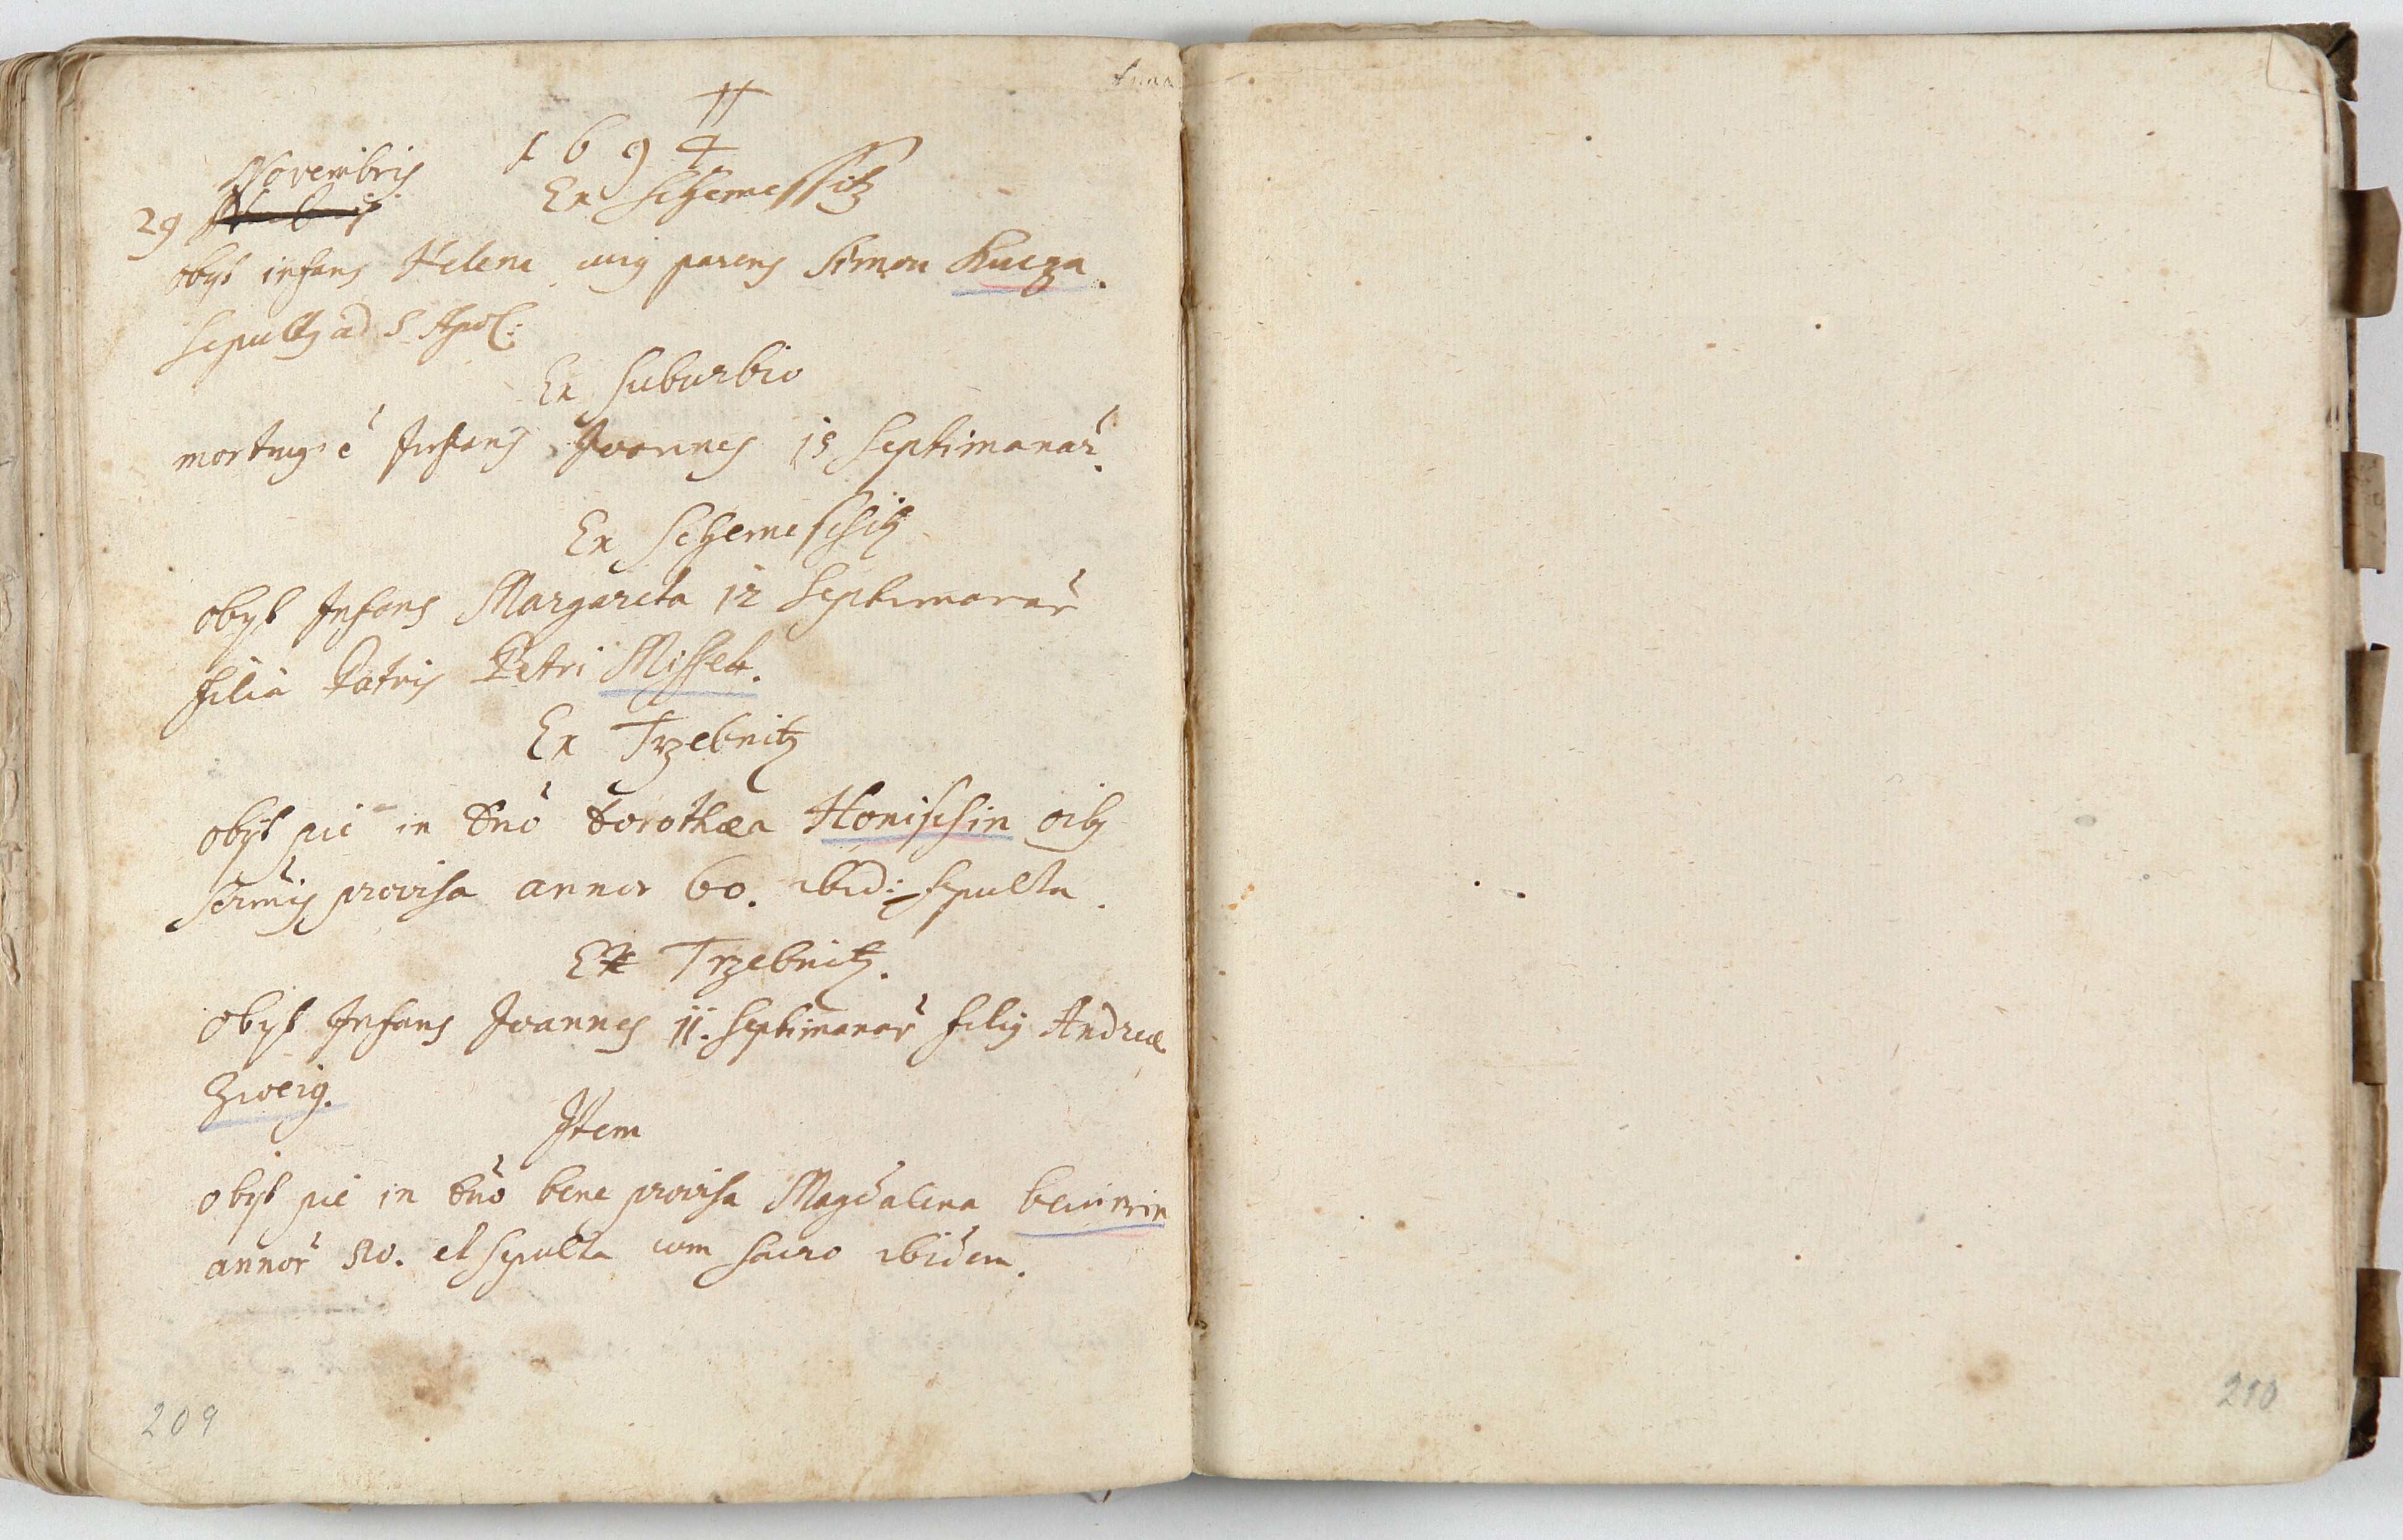 1694
Novembris
29 Ex Schemessitz
obyt infans Helena cuius parens Simon Kucza.
sepultus ad S Apol:
Ex suburbio
mortuus ē Infans Joannes 15 septimanar̃.
Ex Schemeschitz
obyt Infans Margareta 12 septimanar̃
filia Patris Petri Misseck.
Ex Trzebnitz
obyt pie in Dn̄o Dorothæa Honischin oībus
sacr̄mis provisa annor 60. ibid: sepulta.
Ex Trzebnitz.
obyt Infans Joannes 11. septimanar̃ filius Andreæ
Zweig.
Item
obyt pie in Dn̄o bene provisa Magdalena
annor̃ 50. et sepulta cum sacro ibidem.
209
210